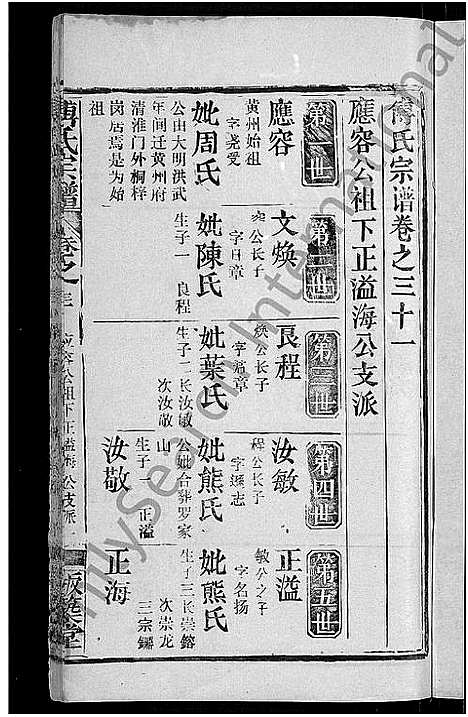 傅氏宗谱卷之三十一
應容公祖下正溢海公支派
第一世
應容
字尧受
黄州始祖
妣周氏
公由大明洪武
年间迁黄州府
清淮门外桐梓
岗居焉是为始
祖
第二世
文焕
容公长子
字日章
妣陳氏
生子一 良程
第三世
良程
焕公长子
妣葉氏
生子二长汝敏
次汝敬
第四世
汝敏
程公长子
妣熊氏
公妣合葬罗家
山
生子一 正溢
汝敬
第五世
正溢
敏公之子
字名扬
妣熊氏
生子三长崇镕
次崇龙
三宗鏽
正海
傅氏宗譜
卷之三
應容公祖下正溢海公支派
版築堂
FamilySearch International